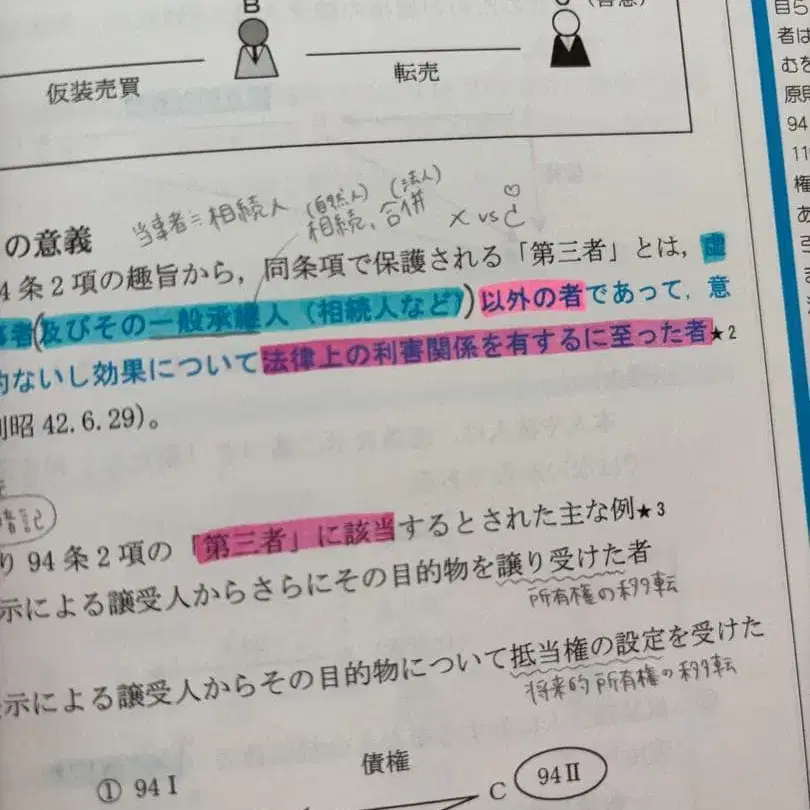 B
仮装売買
転売
の意義
当事者≒相続人
(自然人) (法人)
相続、合併
4条2項の趣旨から，同条項で保護される「第三者」とは，虚
事者(及びその一般承継人（相続人など）)以外の者であって，意
的ないし効果について法律上の利害関係を有するに至った者★2
昭42.6.29)。
暗記
り94条2項の「第三者」に該当するとされた主な例★3
示による譲受人からさらにその目的物を譲り受けた者
所有権の移転
示による譲受人からその目的物について抵当権の設定を受けた
将来的所有権の移転
債権
① 94Ⅰ
C
94Ⅱ
自ら
者は
むを
原則
94
11
権
あ
引